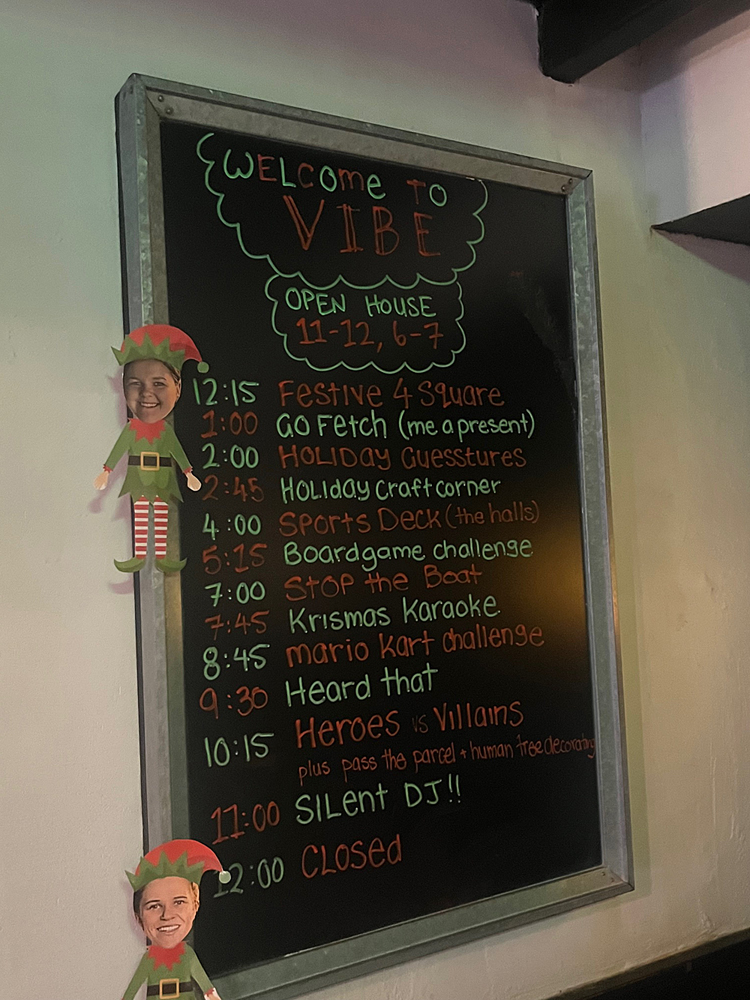 WELCOme TO
VIBE
OPEN HOUSE
11-12, 6-7
12:15 Festive 4 Square
1:00 GO Fetch (me a present)
2:00 HOLIDAY Guesstures
2:45 HOLIDAY Craft corner
4:00 Sports Deck (the halls)
5:15 Boardgame challenge
7:00 Stop the Boat
7:45 Krismas Karaoke
8:45 mario Kart challenge
9:30 Heard that
10:15 Heroes vs Villains
plus pass the parcel + human tree decorating
11:00 Silent DJ!!
12:00 CLOSED